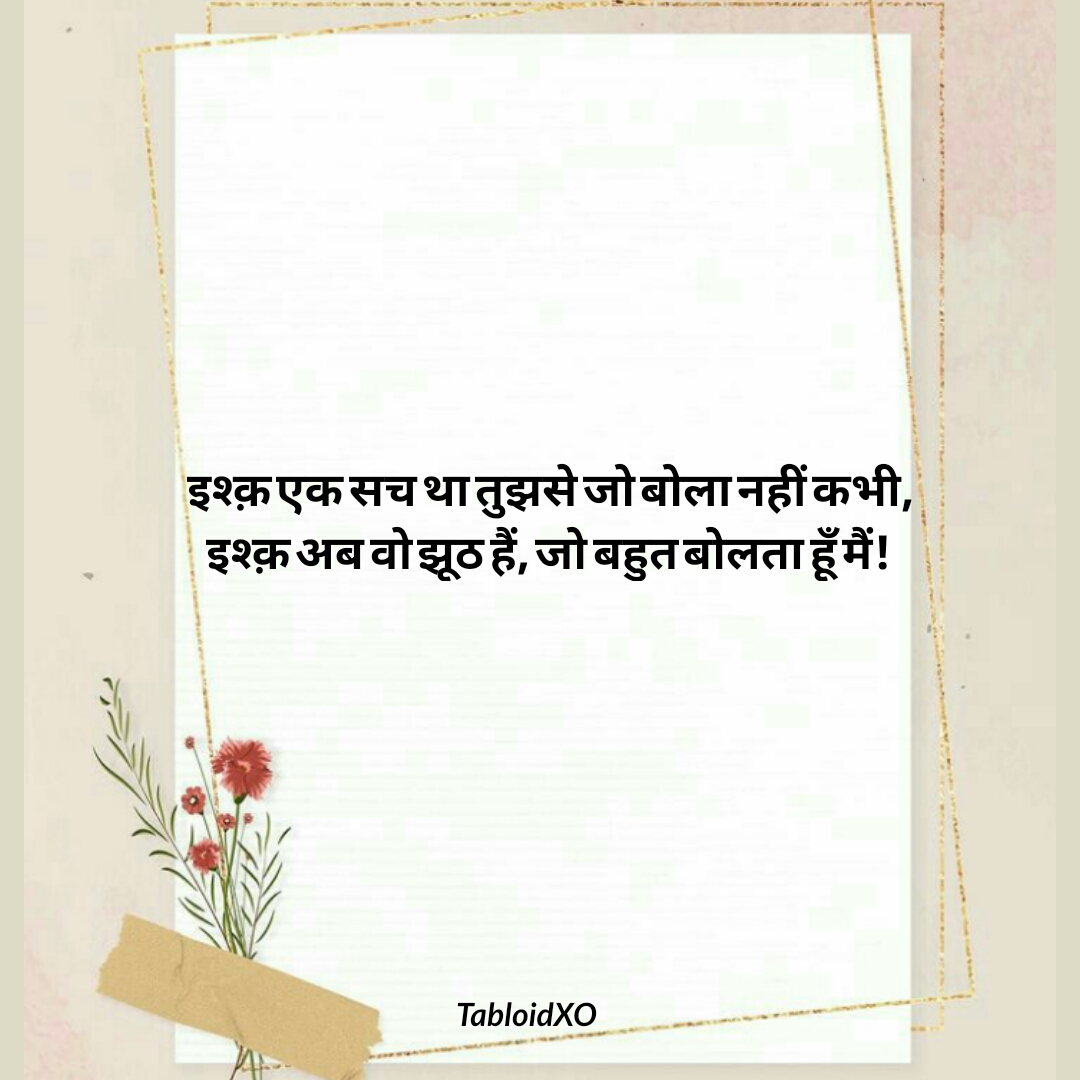 इश्क़ एक सच था तुझसे जो बोला नहीं कभी,
इश्क़ अब वो झूठ हैं, जो बहुत बोलता हूँ मैं!
TabloidXO